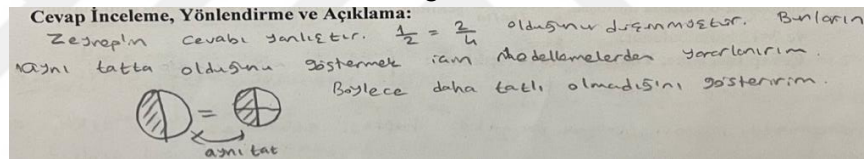 Cevap İnceleme, Yönlendirme ve Açıklama:
Zeynep'in cevabı yanlıştır. 1/2 = 2/4 olduğunu düşünmüştür. Bunların
aynı tatta olduğunu göstermek için modellemelerden yararlanırım.
Böylece daha tatlı olmadığını gösteririm.
=
aynı tat